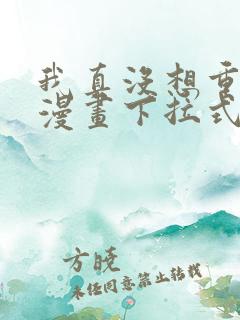 我真没想重
漫画下拉式
方晓
未经同意禁止转载